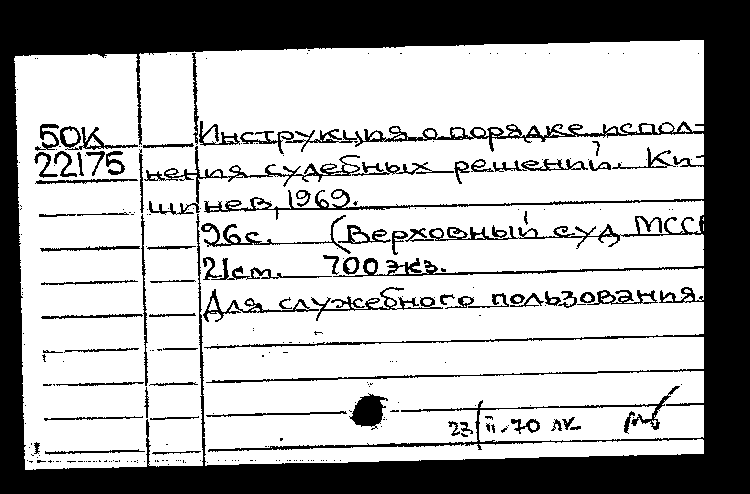 50К Инструкция о порядке испол-
22175 нения судебных решений. Ки-
шинев, 1969.
96с. (Верховный суд МССР
21см. 700 экз.
Для служебного пользования.
23/II-70 лк